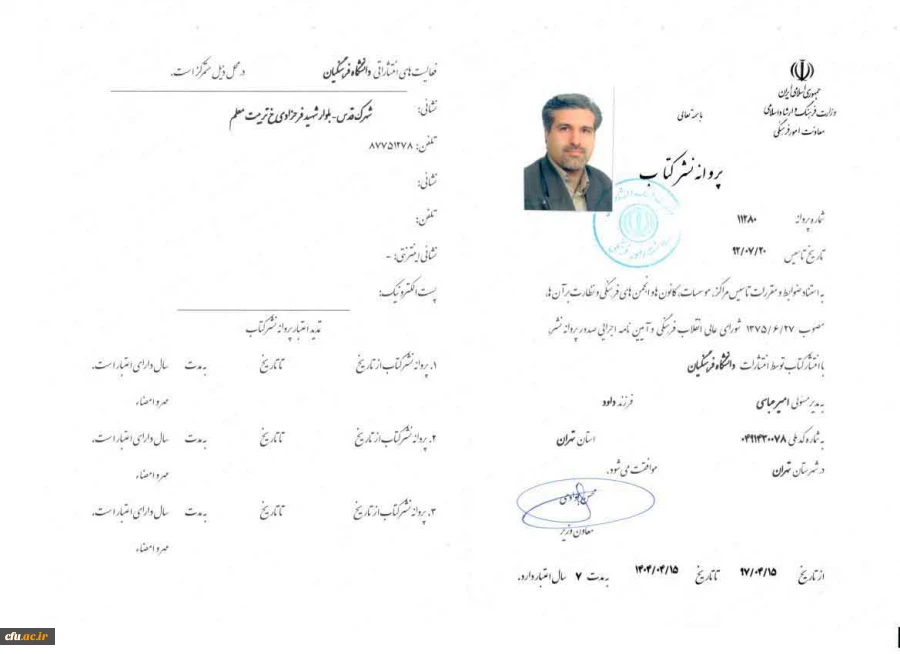 جمهوری اسلامی ایران
وزارت فرهنگ و ارشاد اسلامی
معاونت امور فرهنگی
باسمه تعالی
پروانه نشر کتاب
شماره پروانه ۱۱۲۸۰
تاریخ تاسیس ۹۲/۰۷/۲۰
به استناد ضوابط و مقررات تاسیس مراکز، موسسات، کانون ها و انجمن های فرهنگی و نظارت بر آن ها،
مصوب ۱۳۷۵/۶/۲۷ شورای عالی انقلاب فرهنگی و آیین نامه اجرایی صدور پروانه نشر،
با انتشار کتاب توسط انتشارات دانشگاه فرهنگیان
به مدیر مسئولی امیر عباسی فرزند داود
به شماره کد ملی ۰۴۹۱۴۳۰۰۷۸ استان تهران
در شهرستان تهران موافقت می شود.
معاون وزیر
از تاریخ ۹۷/۰۴/۱۵ تا تاریخ ۱۴۰۴/۰۴/۱۵ به مدت ۷ سال اعتبار دارد.
فعالیت های انتشاراتی دانشگاه فرهنگیان در محل ذیل متمرکز است.
نشانی: شهرک قدس - بلوار شهید فرحزادی خ تربیت معلم
تلفن: ۸۷۷۵۱۲۷۸
نشانی:
تلفن:
نشانی اینترنتی: -
پست الکترونیک:
تمدید اعتبار پروانه نشر کتاب
۱. پروانه نشر کتاب از تاریخ تا تاریخ به مدت سال دارای اعتبار است.
مهر و امضاء
۲. پروانه نشر کتاب از تاریخ تا تاریخ به مدت سال دارای اعتبار است.
مهر و امضاء
۳. پروانه نشر کتاب از تاریخ تا تاریخ به مدت سال دارای اعتبار است.
مهر و امضاء
cfu.ac.ir